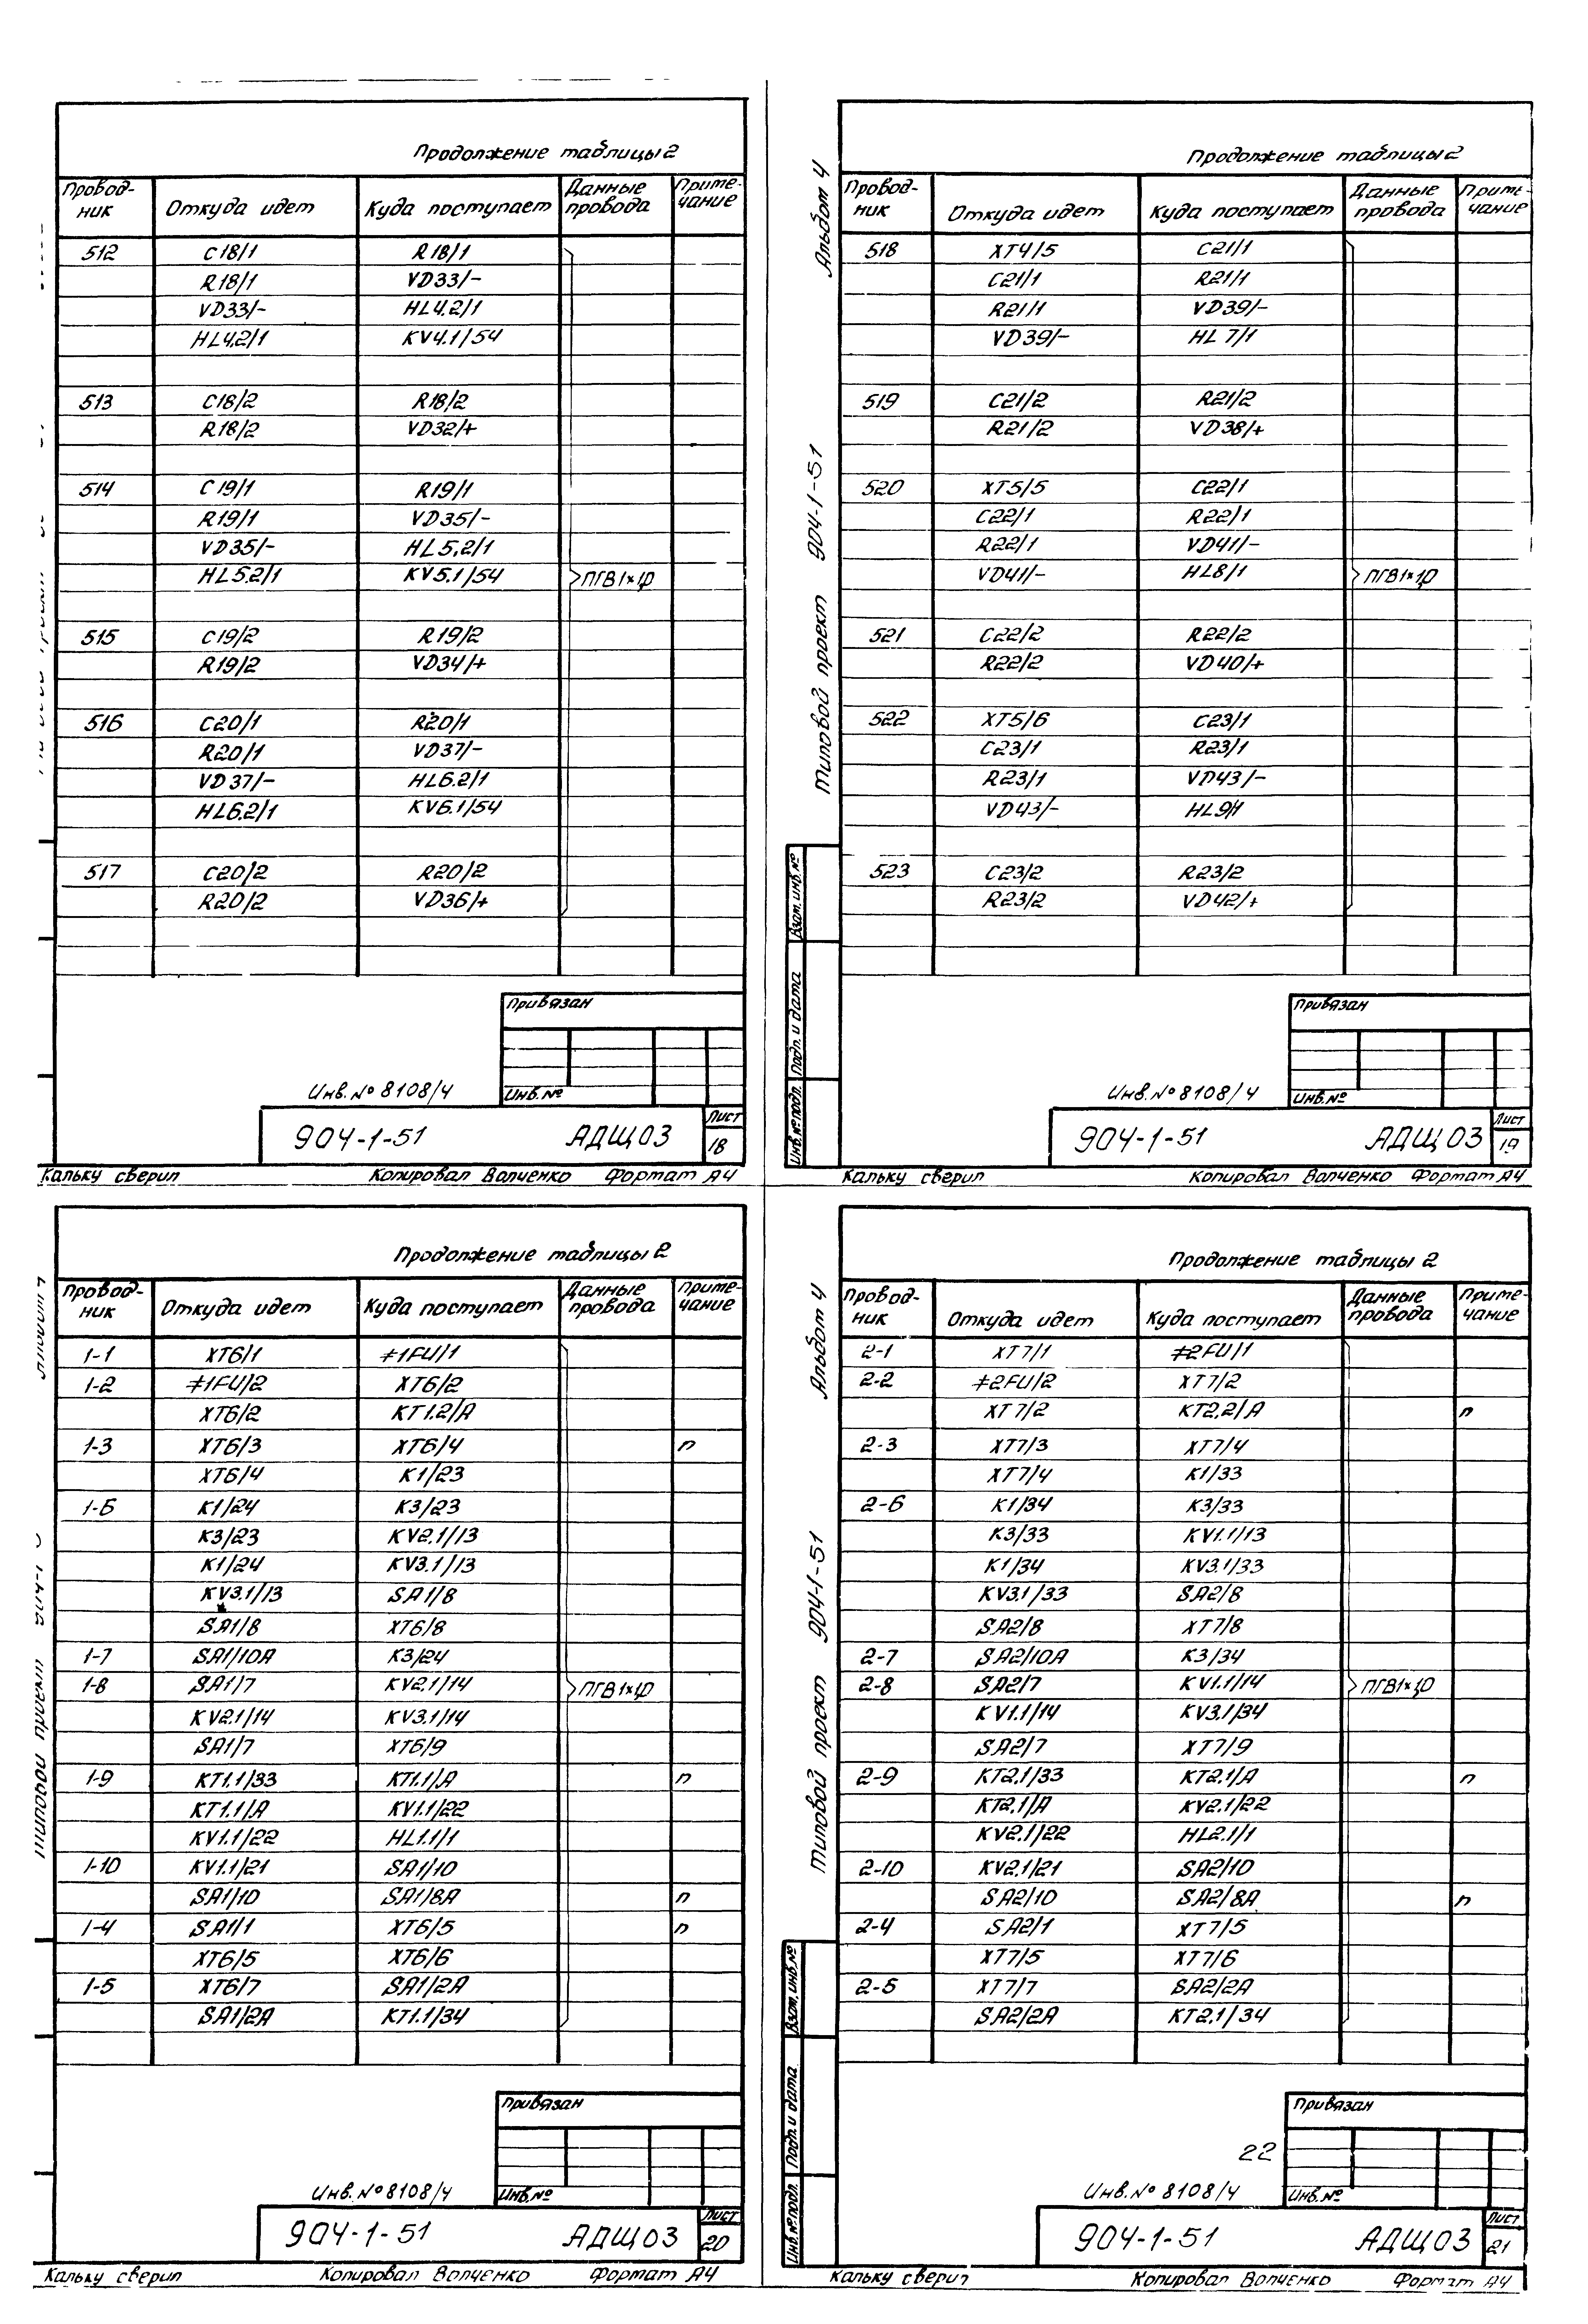 Продолжение таблицы 2
Провод-ник Откуда идет Куда поступает Данные провода Приме-чание
512 C18/1 R18/1
R18/1 VD33/-
VD33/- HL4.2/1
HL4.2/1 KV4.1/54
513 C18/2 R18/2
R18/2 VD32/+
514 C19/1 R19/1
R19/1 VD35/-
VD35/- HL5.2/1
HL5.2/1 KV5.1/54 ПГВ1×1,0
515 C19/2 R19/2
R19/2 VD34/+
516 C20/1 R20/1
R20/1 VD37/-
VD37/- HL6.2/1
HL6.2/1 KV6.1/54
517 C20/2 R20/2
R20/2 VD36/+
Привязан
Инв.№ 8108/4 Инв.№
904-1-51 АДЩ03 Лист 18
Кальку сверил Копировал Волченко Формат А4
Альбом 4
Типовой проект 904-1-51
Продолжение таблицы 2
Провод-ник Откуда идет Куда поступает Данные провода Приме-чание
518 XT4/5 C21/1
C21/1 R21/1
R21/1 VD39/-
VD39/- HL7/1
519 C21/2 R21/2
R21/2 VD38/+
520 XT5/5 C22/1
C22/1 R22/1
R22/1 VD41/-
VD41/- HL8/1 ПГВ1×1,0
521 C22/2 R22/2
R22/2 VD40/+
522 XT5/6 C23/1
C23/1 R23/1
R23/1 VD43/-
VD43/- HL9/1
523 C23/2 R23/2
R23/2 VD42/+
Взам. инв.№
Подп. и дата
Инв.№ подл.
Привязан
Инв.№ 8108/4 Инв.№
904-1-51 АДЩ03 Лист 19
Кальку сверил Копировал Волченко Формат А4
Продолжение таблицы 2
Провод-ник Откуда идет Куда поступает Данные провода Приме-чание
1-1 XT6/1 ≠1FU/1
1-2 ≠1FU/2 XT6/2
XT6/2 KT1.2/A
1-3 XT6/3 XT6/4 п
XT6/4 K1/23
1-6 K1/24 K3/23
K3/23 KV2.1/13
K1/24 KV3.1/13
KV3.1/13 SA1/8
SA1/8 XT6/8
1-7 SA1/10A K3/24
1-8 SA1/7 KV2.1/14 ПГВ1×1,0
KV2.1/14 KV3.1/14
SA1/7 XT6/9
1-9 KT1.1/33 KT1.1/A п
KT1.1/A KV1.1/22
KV1.1/22 HL1.1/1
1-10 KV1.1/21 SA1/10
SA1/10 SA1/8A п
1-4 SA1/1 XT6/5 п
XT6/5 XT6/6
1-5 XT6/7 SA1/2A
SA1/2A KT1.1/34
Привязан
Инв.№ 8108/4 Инв.№
904-1-51 АДЩ03 Лист 20
Кальку сверил Копировал Волченко Формат А4
Альбом 4
Типовой проект 904-1-51
Продолжение таблицы 2
Провод-ник Откуда идет Куда поступает Данные провода Приме-чание
2-1 XT7/1 ≠2FU/1
2-2 ≠2FU/2 XT7/2
XT7/2 KT2.2/A п
2-3 XT7/3 XT7/4
XT7/4 K1/33
2-6 K1/34 K3/33
K3/33 KV1.1/13
K1/34 KV3.1/33
KV3.1/33 SA2/8
SA2/8 XT7/8
2-7 SA2/10A K3/34
2-8 SA2/7 KV1.1/14 ПГВ1×1,0
KV1.1/14 KV3.1/34
SA2/7 XT7/9
2-9 KT2.1/33 KT2.1/A п
KT2.1/A KV2.1/22
KV2.1/22 HL2.1/1
2-10 KV2.1/21 SA2/10
SA2/10 SA2/8A п
2-4 SA2/1 XT7/5
XT7/5 XT7/6
2-5 XT7/7 SA2/2A
SA2/2A KT2.1/34
Взам. инв.№
Подп. и дата
Инв.№ подл.
Привязан
22
Инв.№ 8108/4 Инв.№
904-1-51 АДЩ03 Лист 21
Кальку сверил Копировал Волченко Формат А4